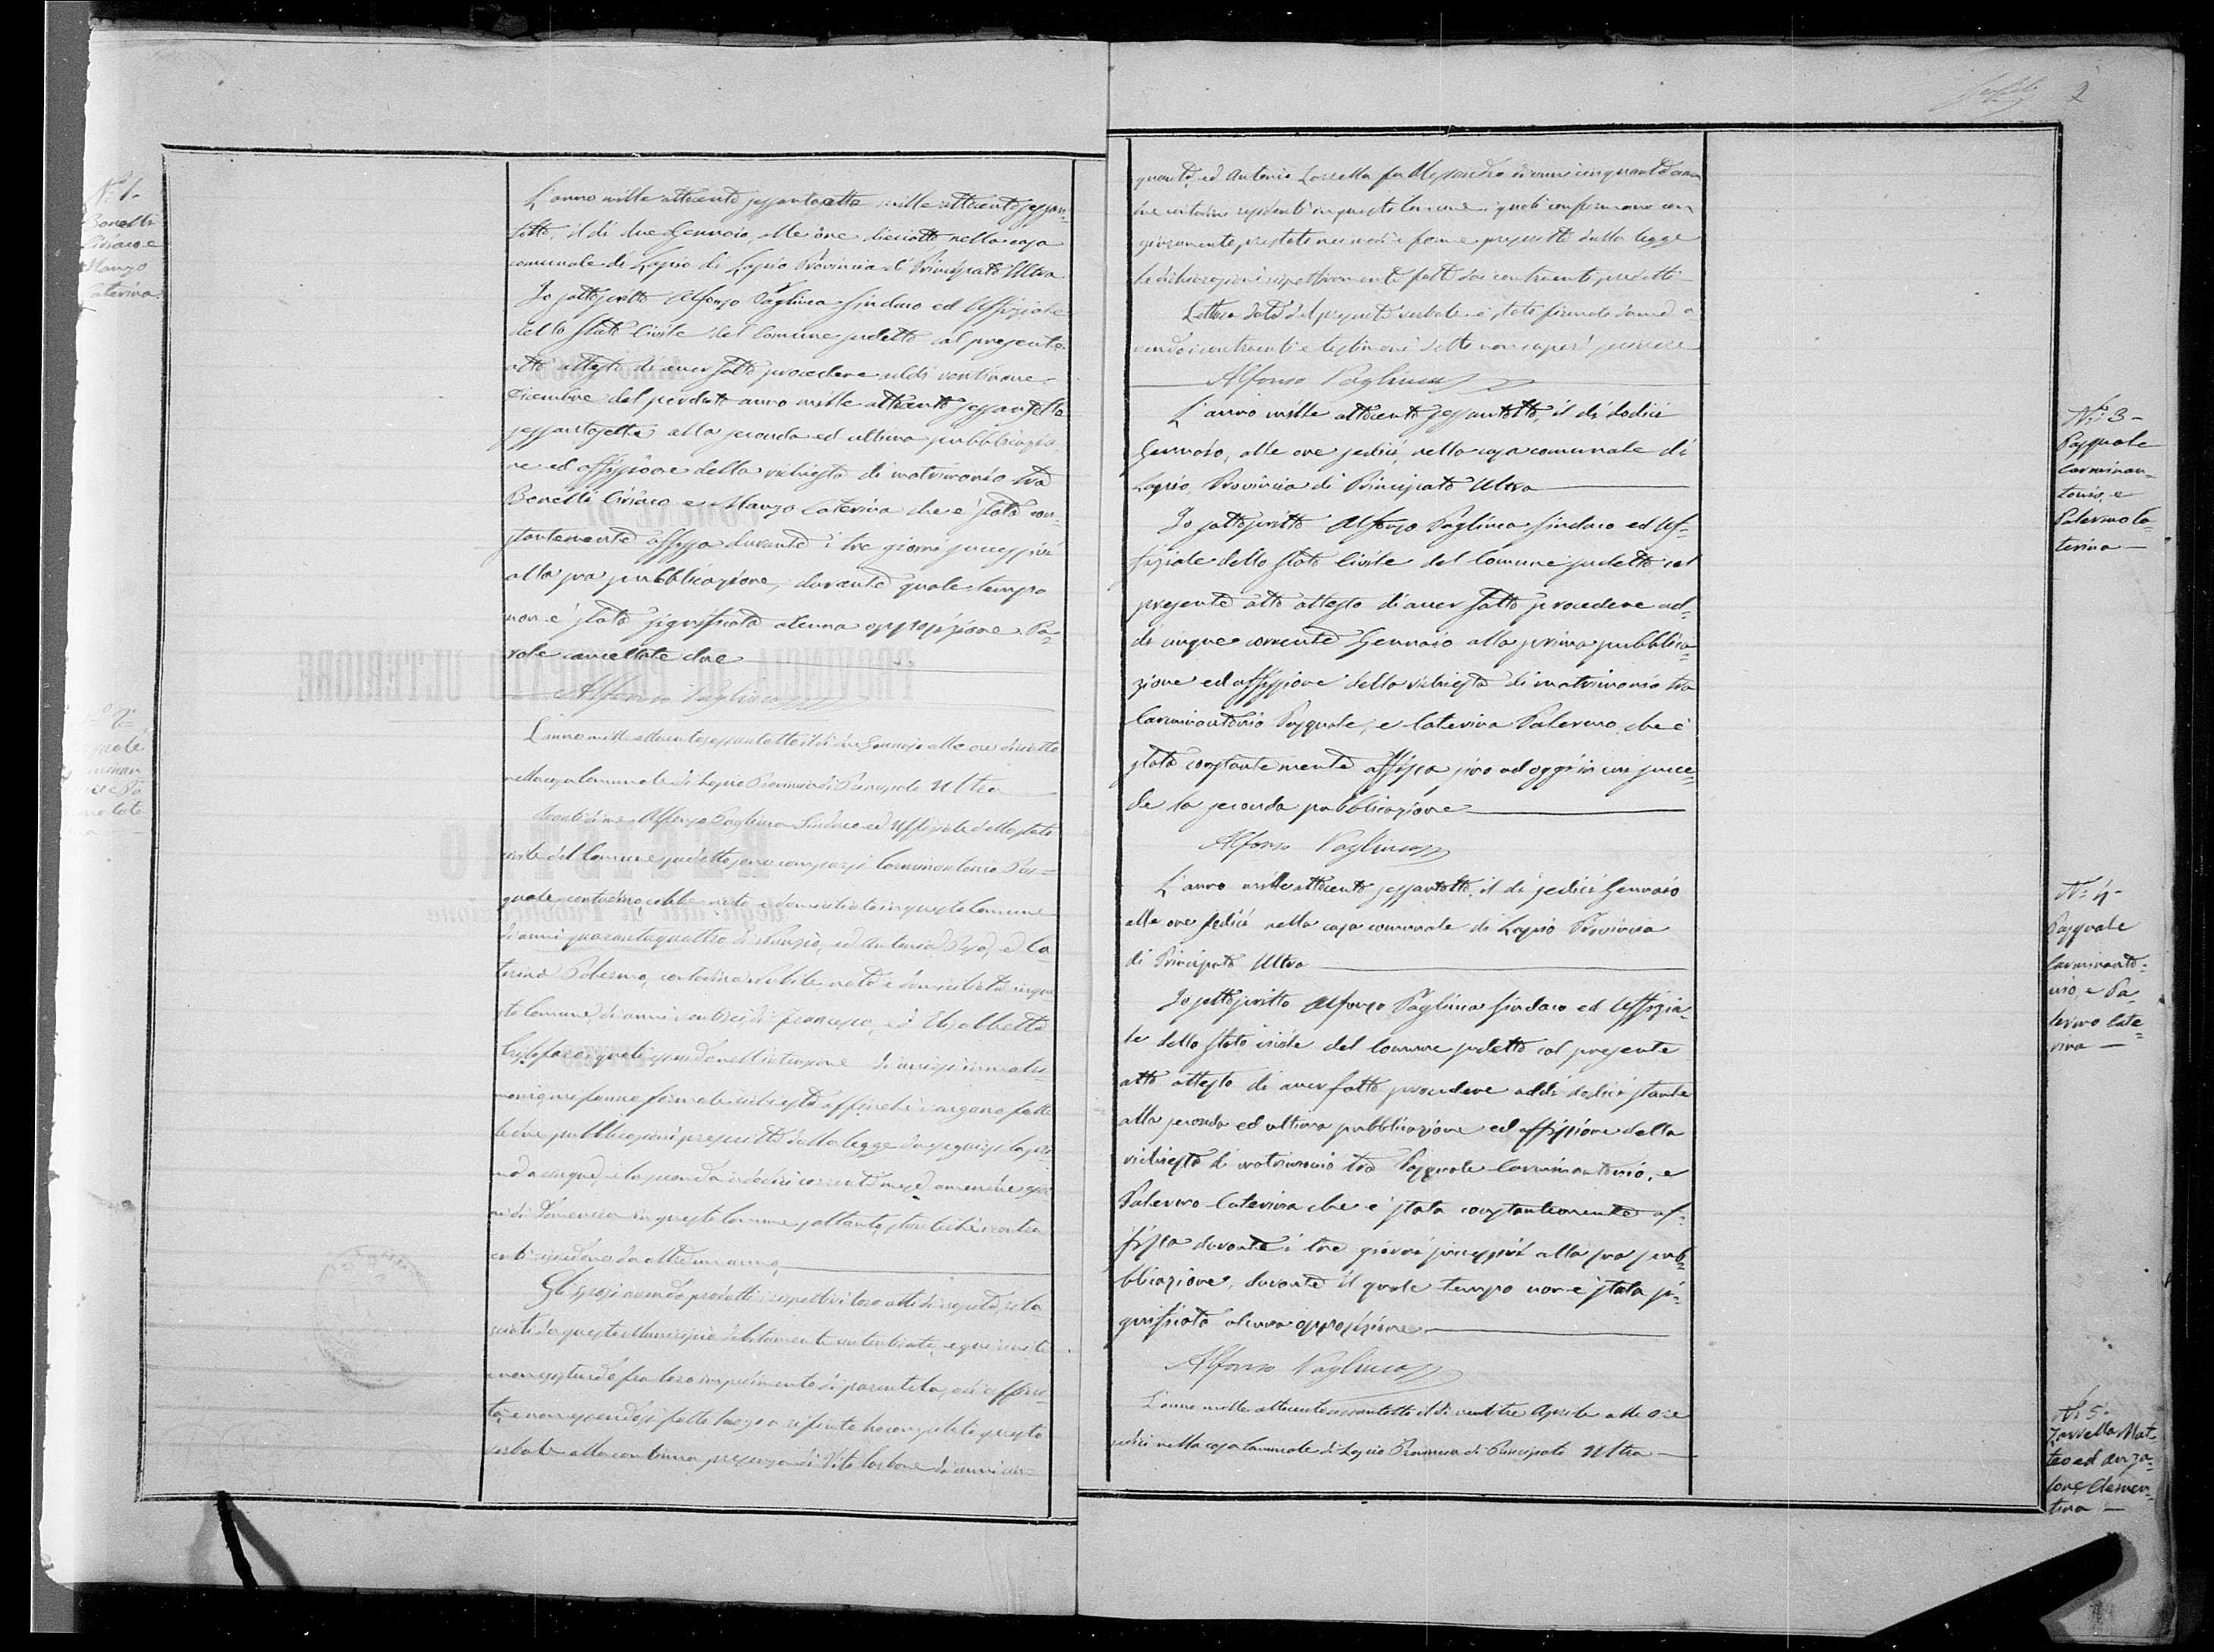 N.º 1.
Bonetti
Ciriaco e
Manzo
Caterina
L'anno mille ottocento sessantaotto mille ottocento sessan-
totto, il dì due Gennaio, alle ore dieciotto nella casa
comunale di Lapio di Lapio Provincia di Principato Ultra
Io sottoscritto Alfonso Pagliuca Sindaco ed Uffiziale
dello Stato Civile del Comune sudetto col presente
atto attesto di aver fatto procedere addì ventinove
Dicembre del perduto anno mille ottocento sessantotto
sessantasette alla seconda ed ultima pubblicazio-
ne ed affissione della richiesta di matrimonio tra
Bonetti Ciriaco e Manzo Caterina che è stata con-
stantemente affissa durante i tre giorni successivi
alla sua pubblicazione, durante quale tempo
non è stata significata alcuna opposizione Pa-
role cancellate due
Alfonso Pagliuca
L'anno mille ottocento sessantotto il dì due Gennajo alle ore dieciotto
nella casa Comunale di Lapio Provincia di Principato Ultra
Avanti di me Alfonso Pagliuca Sindaco ed Uffiziale dello Stato
civile del Comune sudetto sono comparsi Carminantonio Pas-
quale contadino celibe nato e domiciliato in questo Comune
di anni quarantaquattro di ed Antonia e Ca-
terina Palermo, contadina nubile nata e domiciliata in que-
sto Comune, di anni ventisei di Francesco, ed Elisabetta
i quali essendo nell'intenzione di unirsi in matri-
monio mi fanno formale richiesta affinchè vengano fatte
le due pubblicazioni prescritte dalla legge da eseguirsi la pri-
ma a cinque, e la seconda a dodici corrente mese amendue gior-
ni di Domenica in questo Comune soltanto, stantechè i contra-
enti risiedono da oltre un anno
Gli sposi avendo prodotti i rispettivi loro atti di nascita, rila-
sciati da questo Municipio debitamente autenticati, e
non esistendo fra loro impedimento di parentela, o di affini-
tà, e non essendosi fatto luogo a rifiuto ho compilato questo
verbale alla continua presenza di Vito di anni cin-
2
quanta, ed Antonio Zarrella fu Alessandro di anni cinquanta amen-
due contadini residenti in questo Comune i quali confermano con
giuramento prestato nei modi e forme prescritte dalla legge
le dichiarazioni rispettivamente fatte dai contraenti predetti
Lettura data del presente verbale è stato firmato da me a-
vendo i contraenti e testimoni detto non saper scrivere
Alfonso Pagliuca
N.º 3 -
Pasquale
Carminan-
tonio, e
Palermo Ca-
terina -
L'anno mille ottocento sessantotto, il dì dodici
Gennaio, alle ore sedici, nella casa comunale di
Lapio, Provincia di Principato Ultra
Io sottoscritto Alfonso Pagliuca Sindaco ed Uf-
fiziale dello Stato Civile del Comune sudetto col
presente atto attesto di aver fatto procedere ad-
dì cinque corrente Gennaio alla prima pubblica-
zione ed affissione della richiesta di matrimonio tra
Carminantonio Pasquale, e Caterina Palermo, che è
stata constantemente affissa sino ad oggi in cui succe-
de la seconda pubblicazione
Alfonso Pagliuca
N.º 4 -
Pasquale
Carminanto-
nio, e Pa-
lermo Cate-
rina -
L'anno mille ottocento sessantotto, il dì sedici Gennaio
alle ore sedici nella casa comunale di Lapio Provincia
di Principato Ultra
Io sottoscritto Alfonso Pagliuca Sindaco ed Uffizia-
le dello Stato civile del Comune sudetto col presente
atto attesto di aver fatto procedere addì dodici stante
alla seconda ed ultima pubblicazione ed affissione della
richiesta di matrimonio tra Pasquale Carminantonio, e
Palermo Caterina che è stata constantemente af-
fissa durante i tre giorni successivi alla sua pub-
blicazione, durante il quale tempo non è stata si-
gnificata alcuna opposizione
Alfonso Pagliuca
N.º 5.
Zarrella Mat-
teo ed Anza-
lone Clemen-
tina -
L'anno mille ottocento sessantotto il dì ventitre Aprile alle ore
sedici nella casa Comunale di Lapio Provincia di Principato Ultra